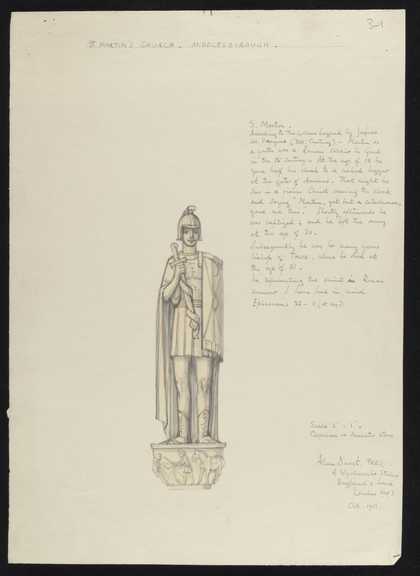 31
St MARTIN'S CHURCH . MIDDLESBOROUGH .
S. Martin.
According to the Golden Legend by Jaques
de Voragine (13th Century) – Martin as
a youth was a Roman soldier in Gaul
in the 4th century. At the age of 18 he
gave half his cloak to a naked beggar
at the gates of Amiens. That night he
saw in a vision Christ wearing the cloak
and saying "Martin, yet but a catechumen,
gave me this." Shortly afterwards he
was baptized & and he left the army
at the age of 20.
Subsequently he was for many years
bishop of Tours, where he died at
the age of 81.
In representing the saint in Roman
armour I have had in mind
Ephesians
Scale
Alan Durst. FRBS.
England's Lane
London NW3
Oct.